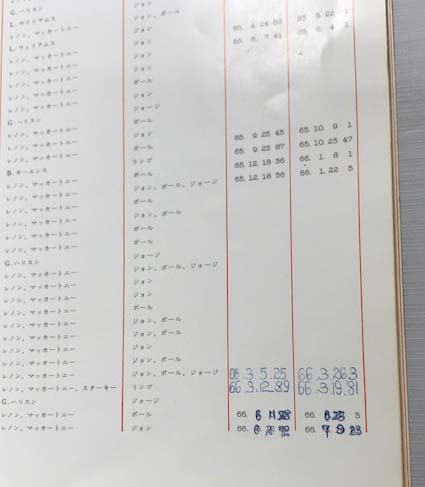 G. ハリスン ジョン
L. ウィリアムス ジョン、ポール
レノン、マッカートニー ジョン 65. 4. 24 59
L. ウィリアムス ジョン 65. 8. 7 41
レノン、マッカートニー ジョン
レノン、マッカートニー ジョン
レノン、マッカートニー ポール
レノン、マッカートニー ジョン
G. ハリスン ジョージ
レノン、マッカートニー ポール
レノン、マッカートニー ジョン 65. 9. 25 45 65. 10. 9 1
レノン、マッカートニー ジョン 65. 9. 25 87 65. 10. 23 47
B. オーエンス リンゴ 65. 12. 18 36 66. 1. 8 1
レノン、マッカートニー ポール 65. 12. 18 56 66. 1. 22 5
レノン、マッカートニー ジョン、ポール、ジョージ
レノン、マッカートニー ポール
レノン、マッカートニー ジョン、ポール
レノン、マッカートニー ポール
レノン、マッカートニー ポール
G. ハリスン ジョージ
レノン、マッカートニー ジョン、ポール、ジョージ
レノン、マッカートニー ジョン
レノン、マッカートニー ジョン
レノン、マッカートニー ポール
レノン、マッカートニー ジョン、ポール
レノン、マッカートニー ジョン、ポール
レノン、マッカートニー ジョン
レノン、マッカートニー ジョン、ポール
レノン、マッカートニー ジョン、ポール、ジョージ 66. 3. 5. 25 66. 3. 26 3
レノン、マッカートニー、スターキー リンゴ 66. 3. 12. 89 66. 3. 19. 81
G. ハリスン ジョージ
レノン、マッカートニー ポール 66. 66. 3
レノン、マッカートニー ジョン 66. 66.